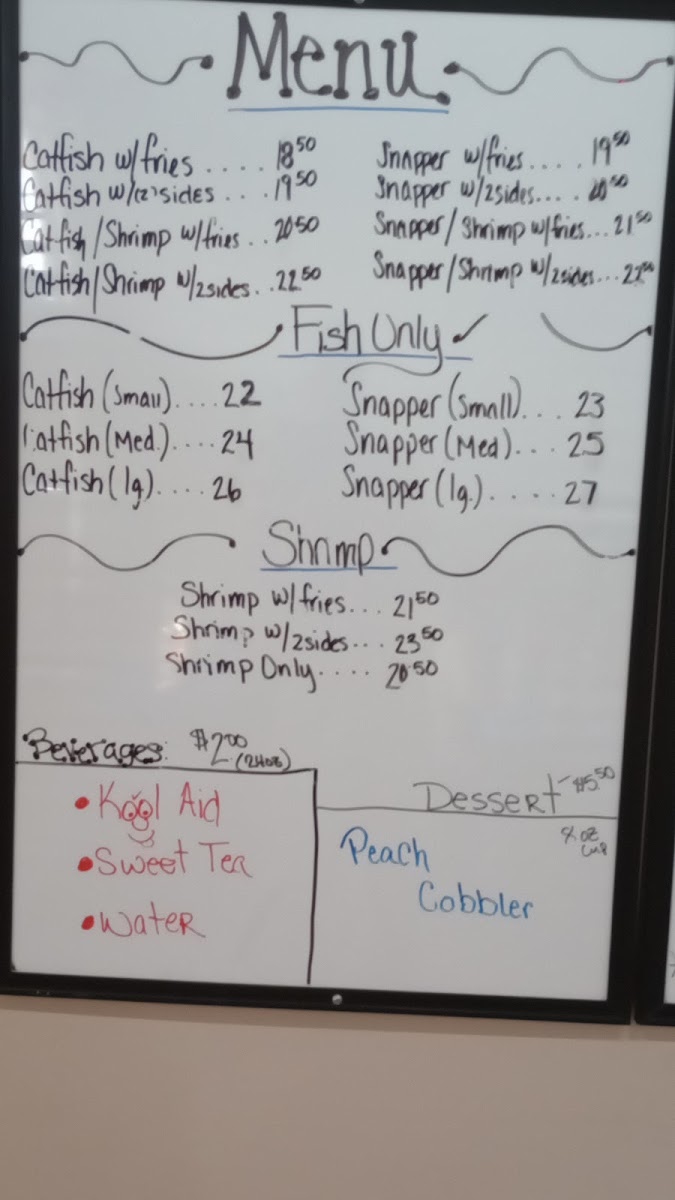 Menu
Catfish w/fries .... 18⁵⁰
Catfish w/(2) sides ... 19⁵⁰
Catfish/Shrimp w/fries .. 20⁵⁰
Catfish/Shrimp w/2sides .. 22⁵⁰
Snapper w/fries .... 19⁵⁰
Snapper w/2sides.... 20⁵⁰
Snapper/Shrimp w/fries... 21⁵⁰
Snapper/Shrimp w/2sides...
Fish Only ✓
Catfish (Small).... 22
Catfish (Med.).... 24
Catfish (lg).... 26
Snapper (Small)... 23
Snapper (Med)... 25
Snapper (lg.).... 27
Shrimp
Shrimp w/fries... 21⁵⁰
Shrimp w/2sides... 23⁵⁰
Shrimp Only.... 20.50
Beverages: $2⁰⁰ (24oz)
• Kool Aid
• Sweet Tea
• Water
Dessert - $5.50
8 oz
cup
Peach
Cobbler